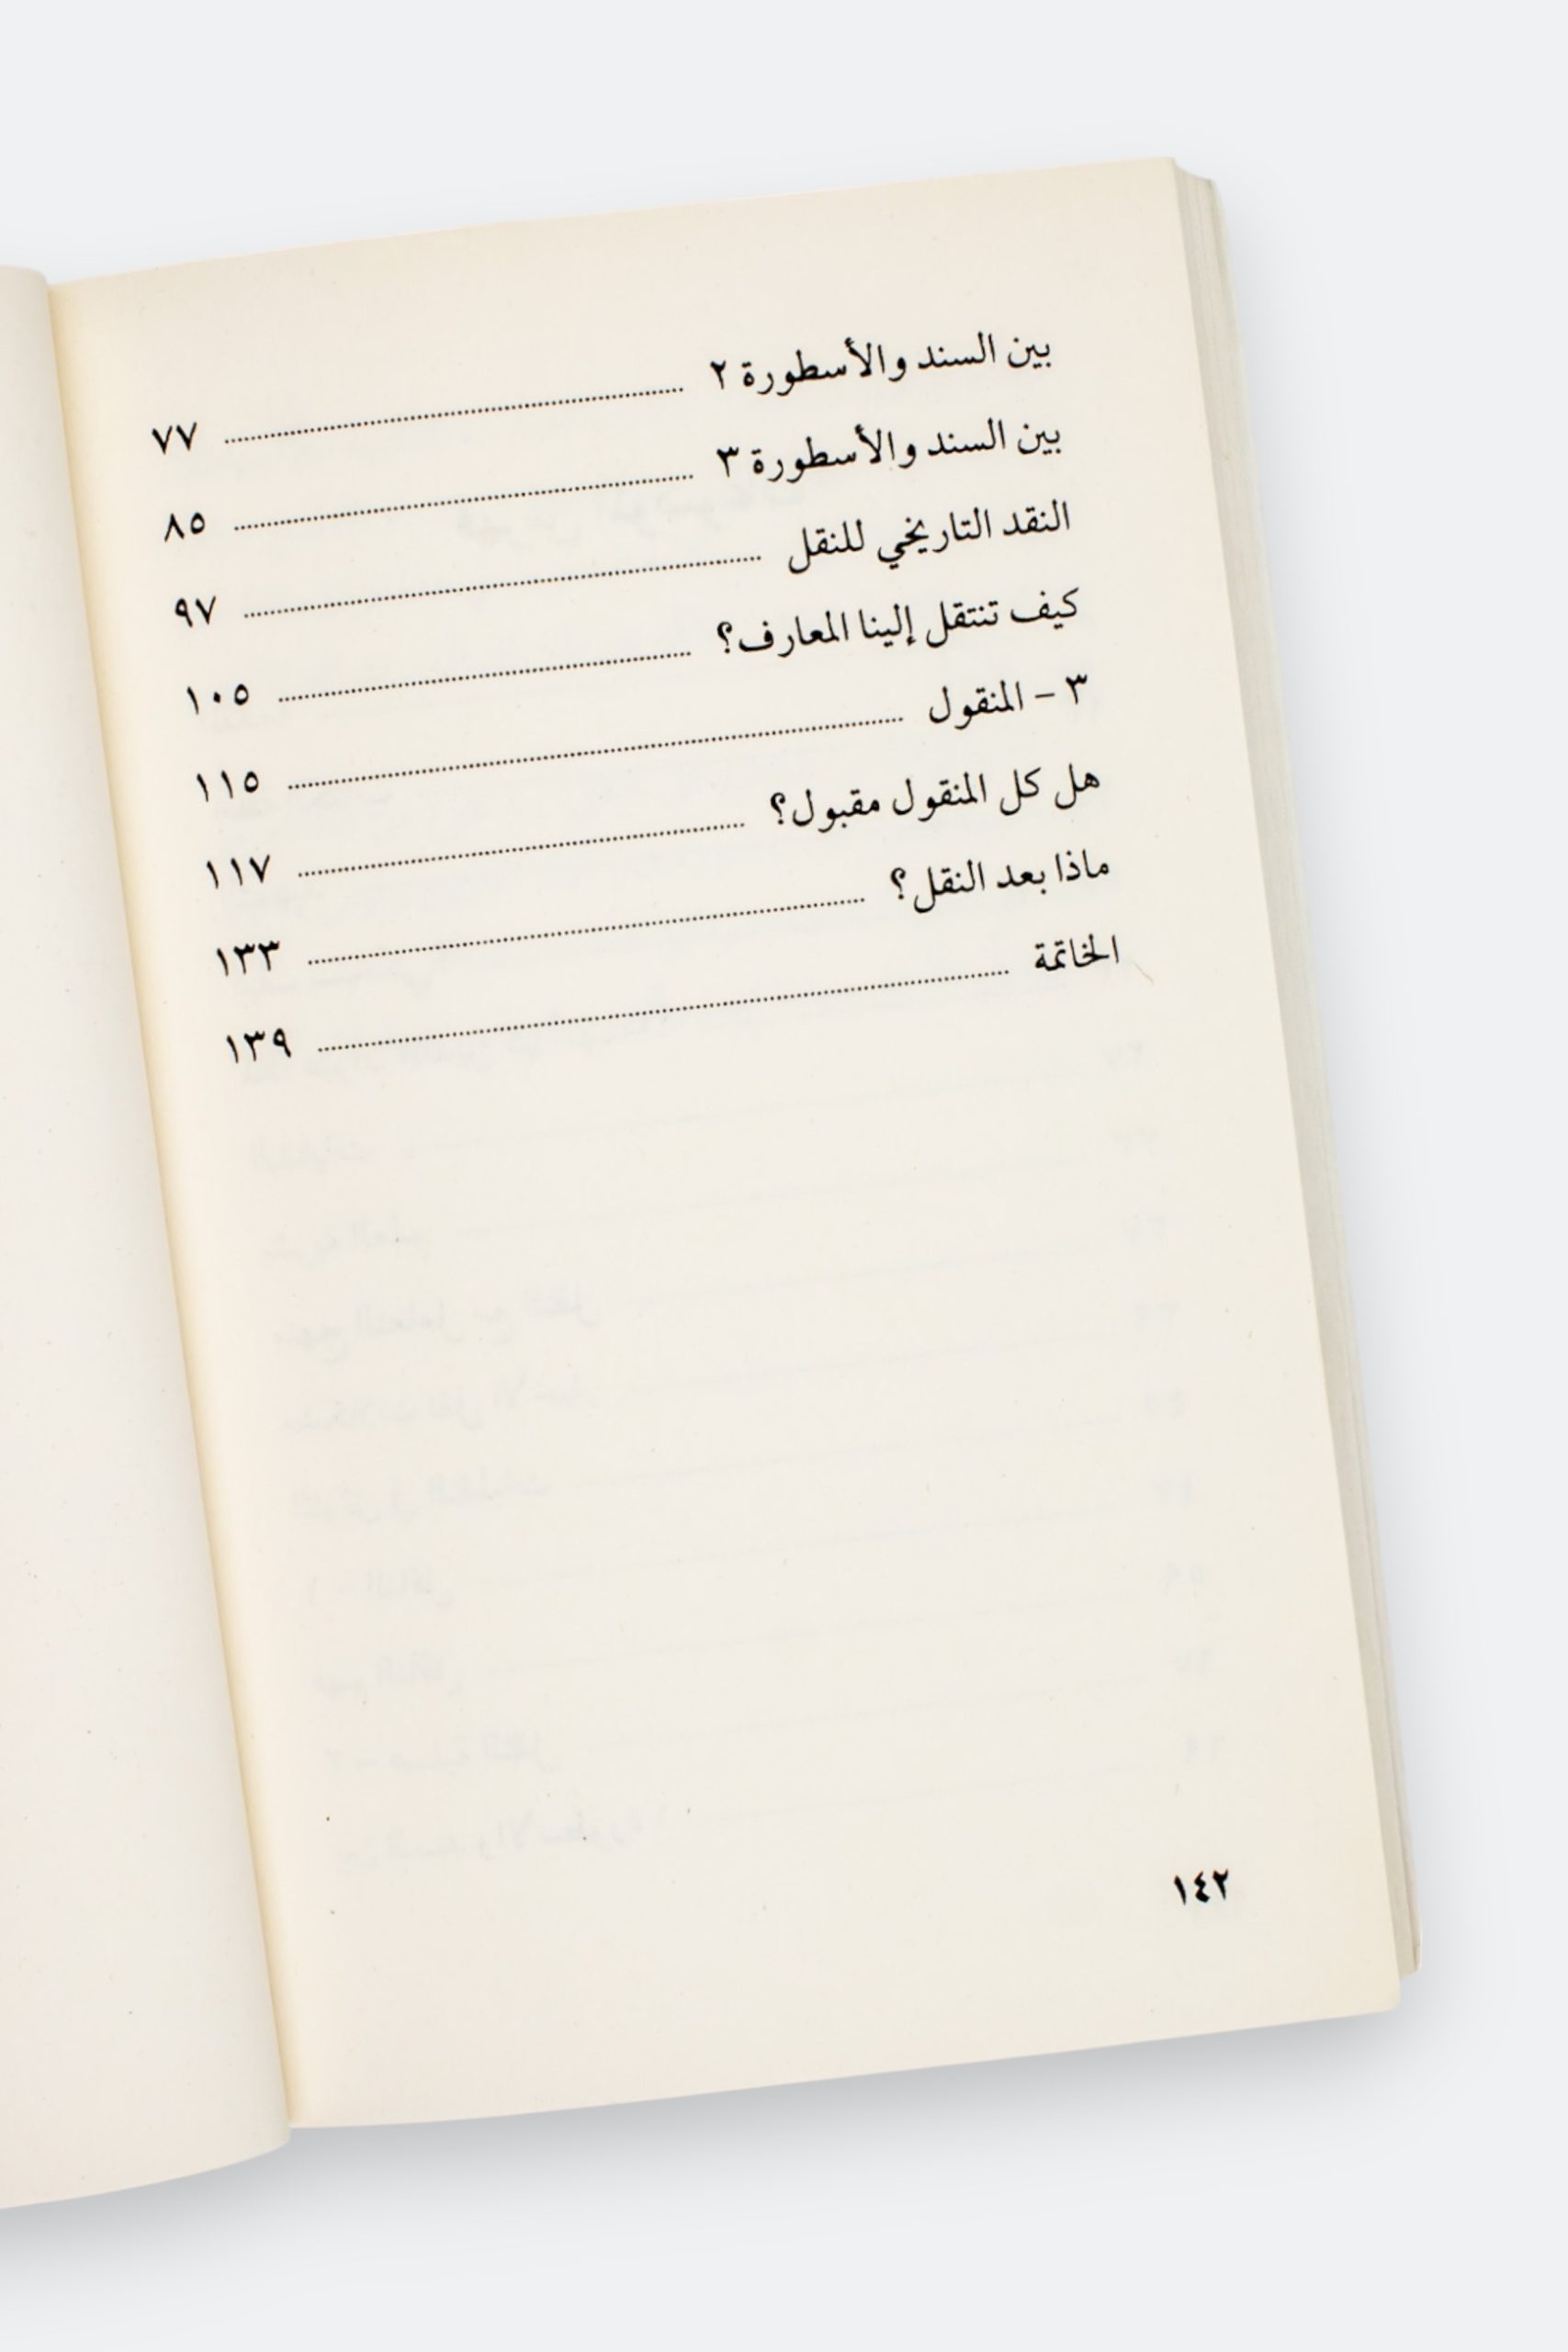 بين السند والأسطورة ٢ ........ ٧٧
بين السند والأسطورة ٣ ........ ٨٥
النقد التاريخي للنقل ........ ٩٧
كيف تنتقل إلينا المعارف؟ ........ ١٠٥
٣ - المنقول ........ ١١٥
هل كل المنقول مقبول؟ ........ ١١٧
ماذا بعد النقل؟ ........ ١٣٣
الخاتمة ........ ١٣٩
١٤٢